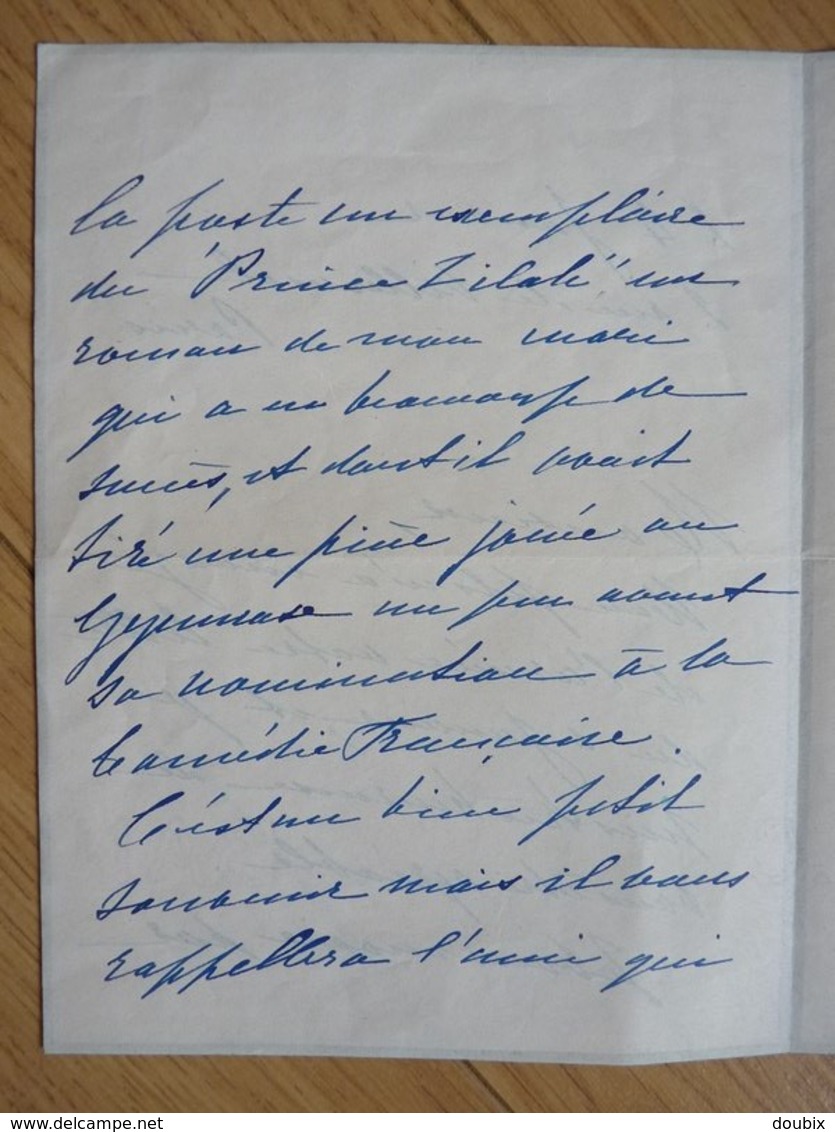 la poste un exemplaire
du "Prince Zilah" un
roman de mon mari
qui a eu beaucoup de
succès, et dont il avait
tiré une pièce jouée au
Gymnase un peu avant
sa nomination à la
Comédie Française.
C'est un bien petit
souvenir mais il vous
rappellera l'ami qui
delcampe.net
doubix